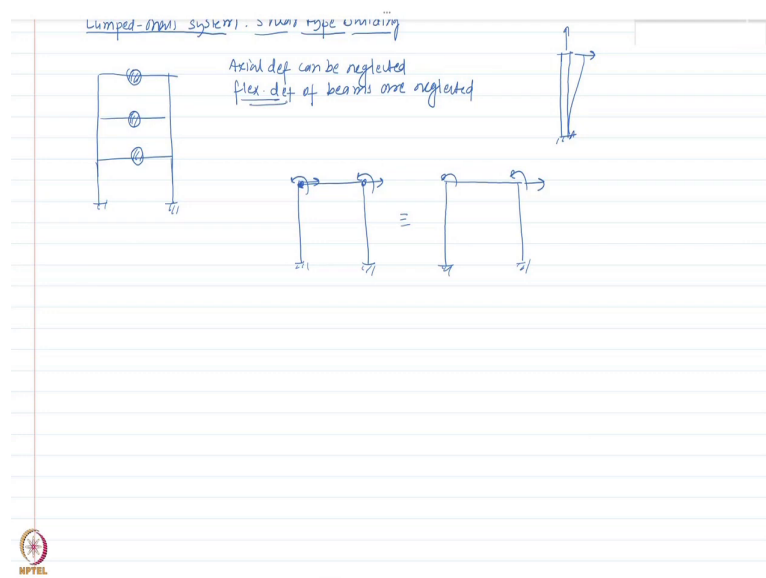 Lumped-mass system. Shear type building
Axial def can be neglected
flex. def of beams are neglected
NPTEL